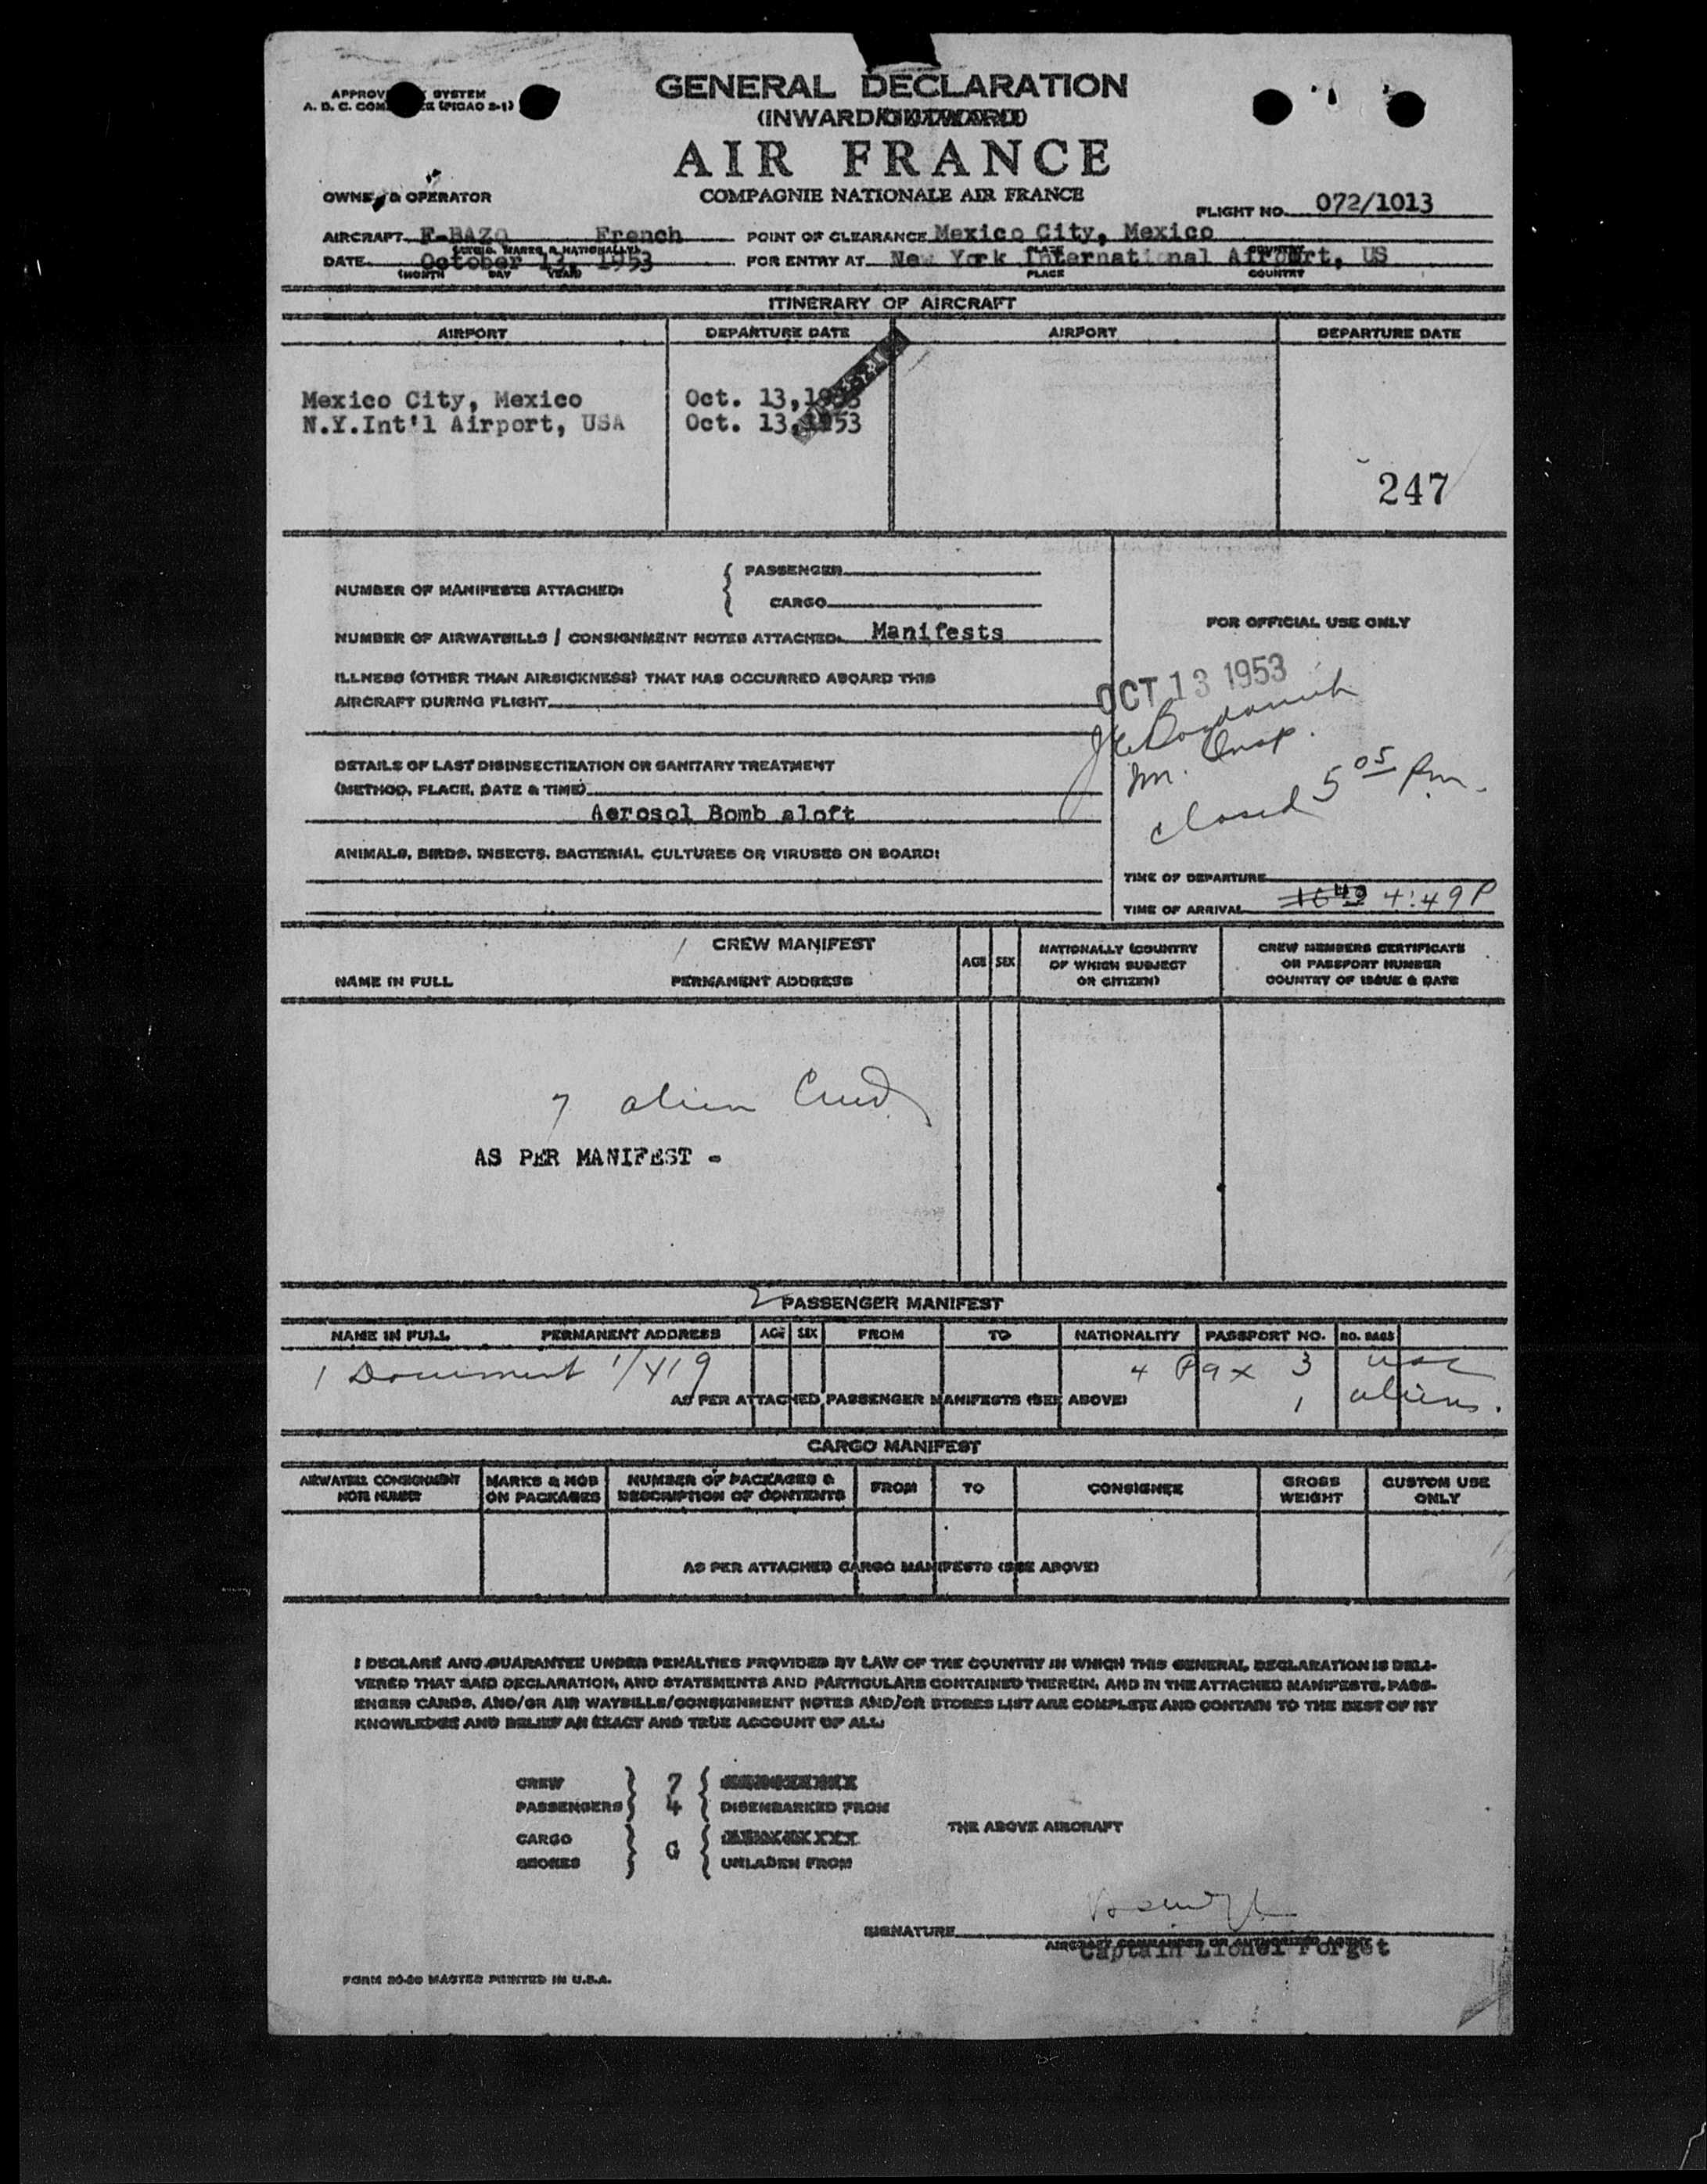 GENERAL DECLARATION
(INWARD
AIR FRANCE
COMPAGNIE NATIONALE AIR FRANCE
OPERATOR
FLIGHT NO. 072/1013
AIRCRAFT F-BAZQ French
POINT OF CLEARANCE Mexico City, Mexico
PLACE COUNTRY
DATE October 13, 1953
FOR ENTRY AT New York International Airport, US
(MONTH DAY YEAR)
PLACE COUNTRY
ITINERARY OF AIRCRAFT
AIRPORT DEPARTURE DATE AIRPORT DEPARTURE DATE
Mexico City, Mexico Oct. 13,1953
N.Y.Int'l Airport, USA Oct. 13,1953
247
NUMBER OF MANIFESTS ATTACHED:
PASSENGER
CARGO
NUMBER OF AIRWAYBILLS / CONSIGNMENT NOTES ATTACHED: Manifests
FOR OFFICIAL USE ONLY
ILLNESS (OTHER THAN AIRSICKNESS) THAT HAS OCCURRED ABOARD THIS
AIRCRAFT DURING FLIGHT
OCT 13 1953
Insp.
DETAILS OF LAST DISINSECTIZATION OR SANITARY TREATMENT
(METHOD, PLACE, DATE & TIME)
Aerosol Bomb aloft
closed 5 05 Pm.
ANIMALS, BIRDS, INSECTS, BACTERIAL CULTURES OR VIRUSES ON BOARD:
TIME OF DEPARTURE
TIME OF ARRIVAL 4:49 P
CREW MANIFEST
NAME IN FULL PERMANENT ADDRESS
AGE SEX
NATIONALLY (COUNTRY
OF WHICH SUBJECT
OR CITIZEN)
CREW MEMBERS CERTIFICATE
OR PASSPORT NUMBER
COUNTRY OF ISSUE & DATE
7 alien
AS PER MANIFEST -
PASSENGER MANIFEST
NAME IN FULL PERMANENT ADDRESS AGE SEX FROM TO NATIONALITY PASSPORT NO. NO. BAGS
1 Document 1/419 4 Pax 3 usc
AS PER ATTACHED PASSENGER MANIFESTS (SEE ABOVE) 1 aliens.
CARGO MANIFEST
AIRWAYBILL CONSIGNMENT
NOTE NUMBER
MARKS & NOS
ON PACKAGES
NUMBER OF PACKAGES &
DESCRIPTION OF CONTENTS
FROM TO CONSIGNEE
GROSS
WEIGHT
CUSTOM USE
ONLY
AS PER ATTACHED CARGO MANIFESTS (SEE ABOVE)
I DECLARE AND GUARANTEE UNDER PENALTIES PROVIDED BY LAW OF THE COUNTRY IN WHICH THIS GENERAL DECLARATION IS DELI-
VERED THAT SAID DECLARATION, AND STATEMENTS AND PARTICULARS CONTAINED THEREIN, AND IN THE ATTACHED MANIFESTS, PASS-
ENGER CARDS, AND/OR AIR WAYBILLS/CONSIGNMENT NOTES AND/OR STORES LIST ARE COMPLETE AND CONTAIN TO THE BEST OF MY
KNOWLEDGE AND BELIEF AN EXACT AND TRUE ACCOUNT OF ALL:
CREW 7
PASSENGERS 4 DISEMBARKED FROM
THE ABOVE AIRCRAFT
CARGO G
UNLADEN FROM
SIGNATURE
AIRCRAFT COMMANDER OR AUTHORIZED AGENT
Captain Lionel Forget
MASTER PRINTED IN U.S.A.